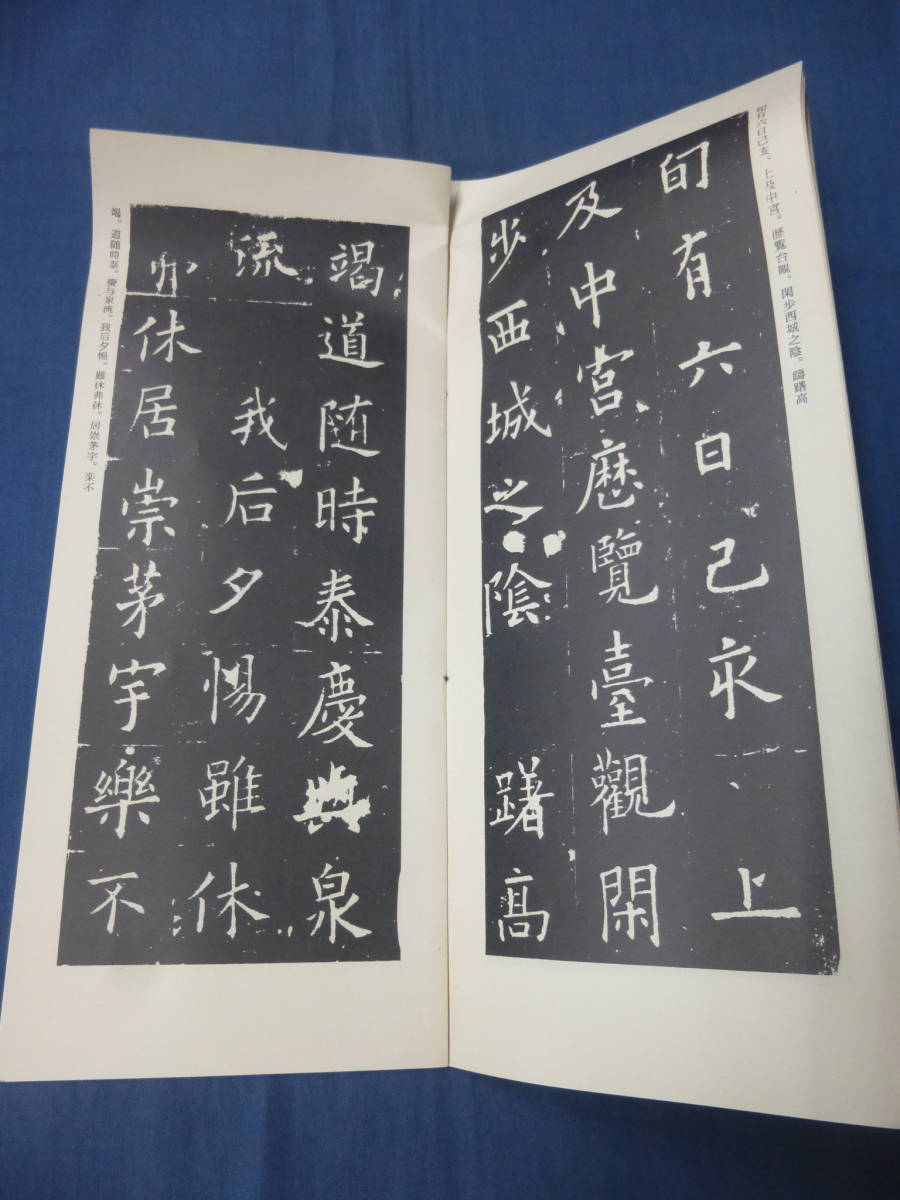 旬有六日己亥。上及中宮。歴覧台観。閑歩西城之陰。躊躇高
旬有六日己亥上
及中宮歷覽臺觀閑
步西城之陰躇高
竭道随時泰慶與泉
流我后夕惕雖休
休居崇茅宇樂不
竭。道随時泰。慶与泉流。我后夕惕。雖休弗休。居崇茅宇。楽不